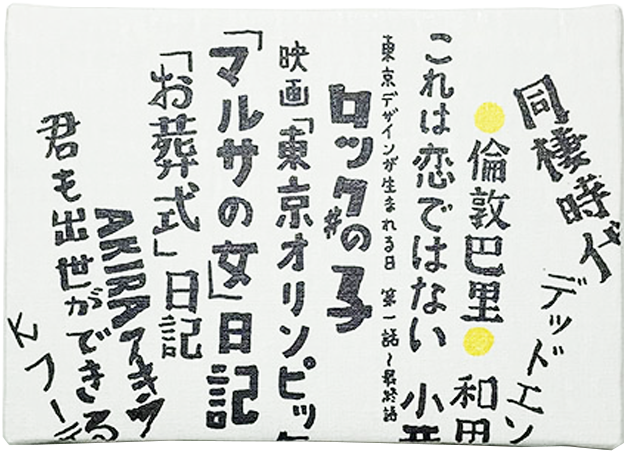 同棲時代
デッドエン
倫敦巴里
和田
これは恋ではない
小西
東京デザインが生まれる日 第一話〜最終話
ロック#の子
映画「東京オリンピック
「マルサの女」日記
「お葬式」日記
AKIRAアキラ
君も出世ができる
Kフーデ